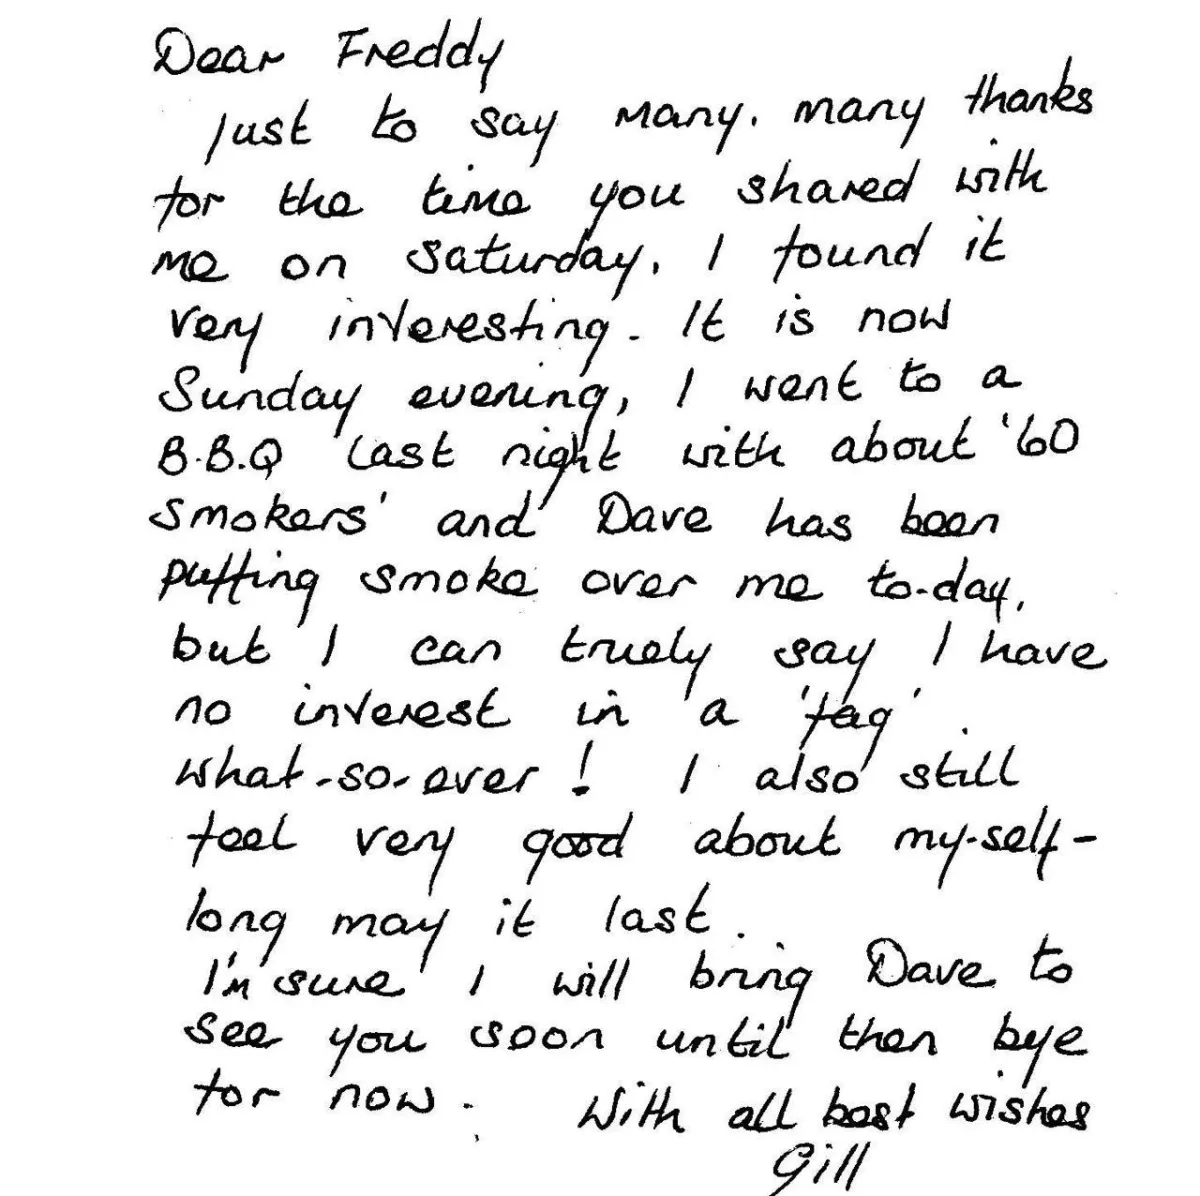 Dear Freddy
Just to say many, many thanks
for the time you shared with
me on Saturday, I found it
very interesting. It is now
Sunday evening, I went to a
B.B.Q last night with about '60
smokers' and Dave has been
puffing smoke over me to-day,
but I can truely say I have
no interest in a 'fag'
what-so-ever! I also still
feel very good about my-self-
long may it last.
I'm sure I will bring Dave to
see you soon until then bye
for now. With all best wishes
Gill